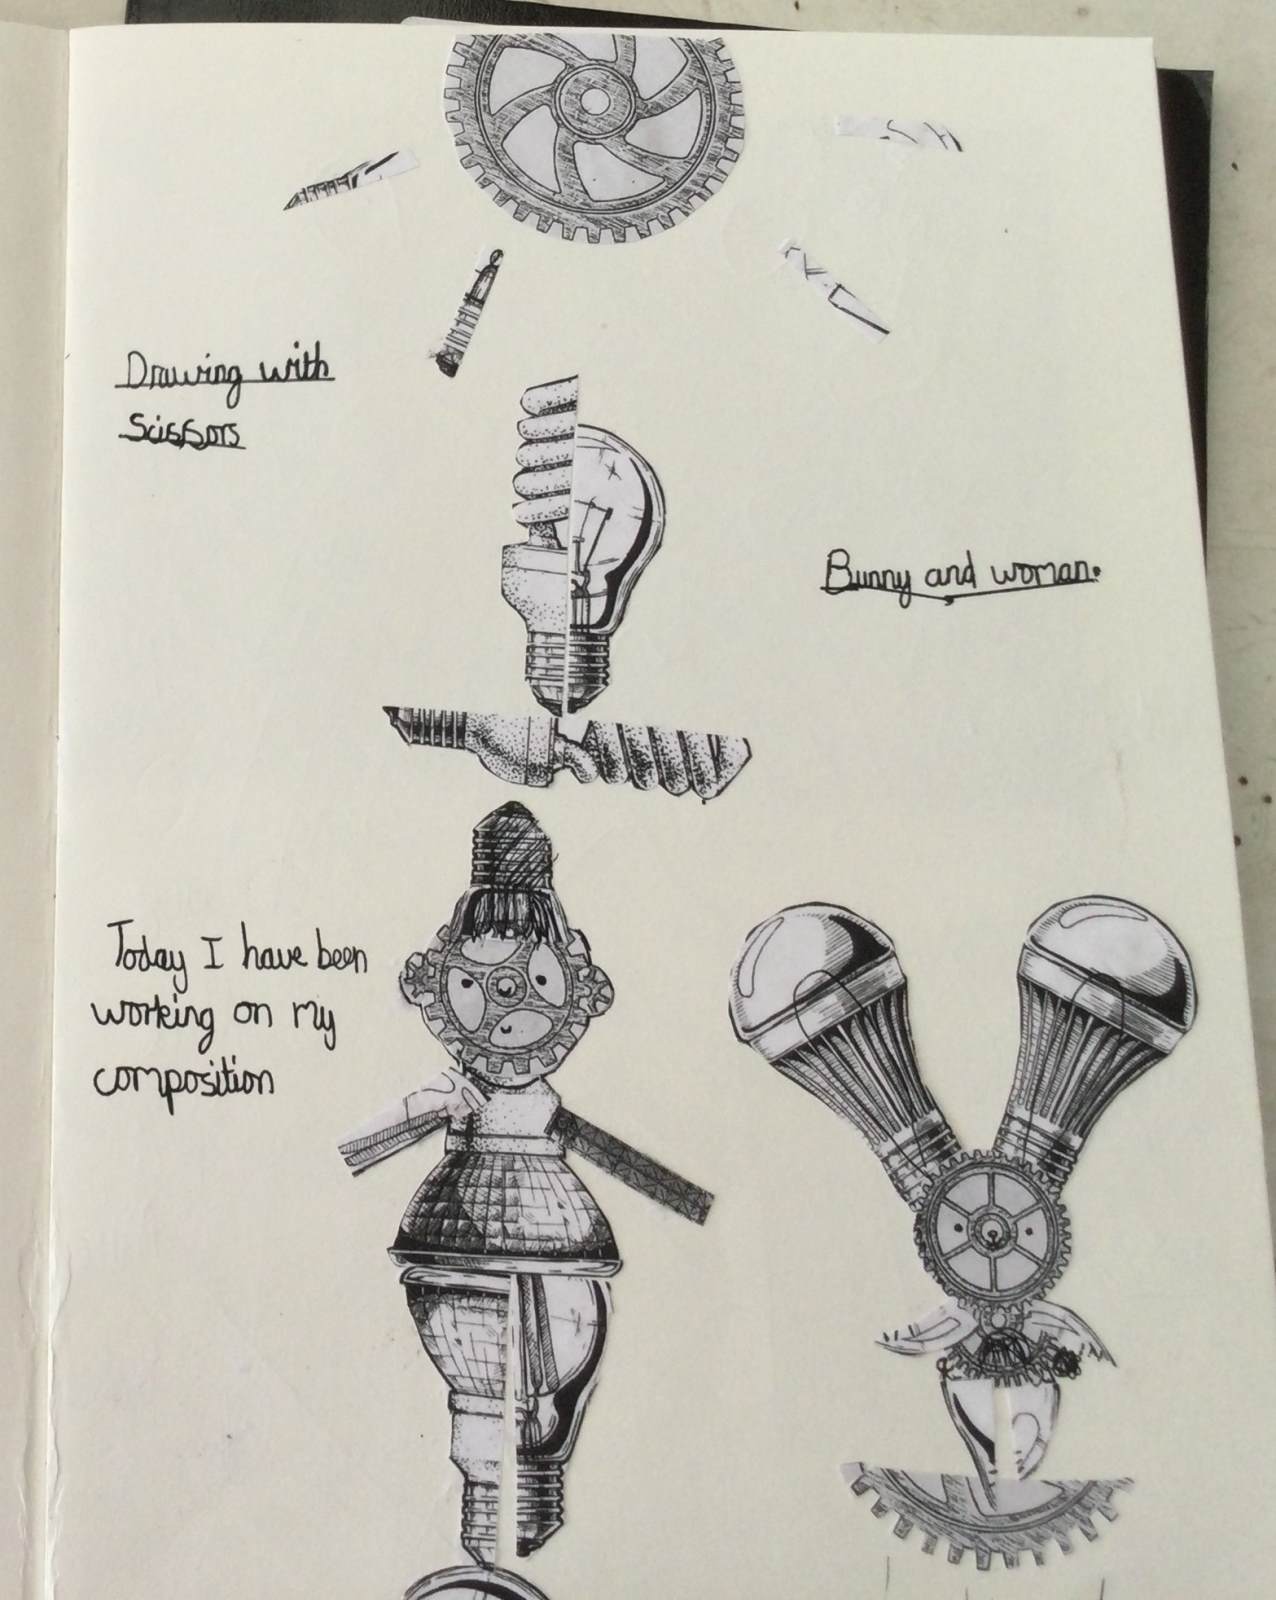 Drawing with
Scissors
Bunny and woman.
Today I have been
working on my
composition